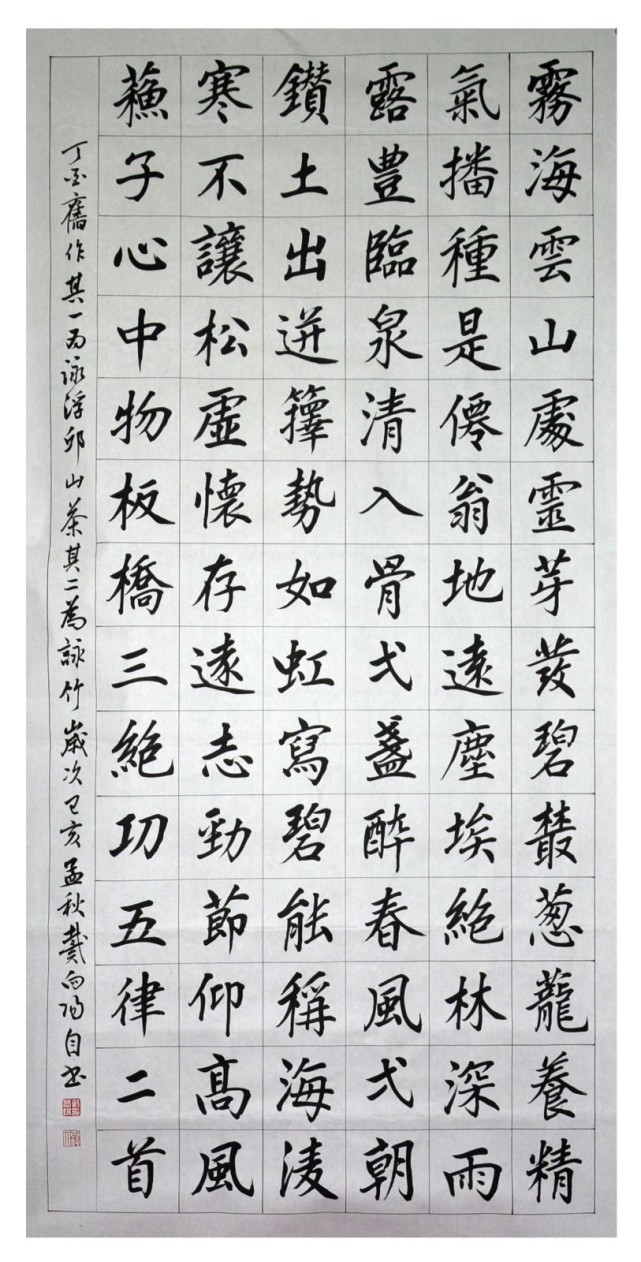 霧海雲山處靈芽發碧叢葱蘢養精
氣播種是僊翁地遠塵埃絕林深雨
露豊臨泉清入骨弌盞醉春風弌朝
鑽土出迸籜勢如虹寫碧能稱海凌
寒不讓松虛懷存遠志勁節仰髙風
蘓子心中物板橋三絕功五律二首
丁酉舊作其一为詠浮邱山茶其二為詠竹歲次己亥孟秋戴向陽自書